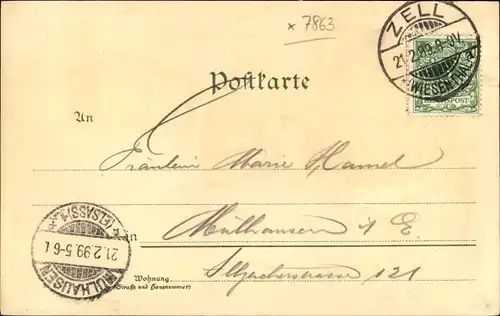 x 7863
ZELL
21.2.99.9-10V
(WIESENTHAL)
REICHSPOST
Postkarte
An
Fräulein Marie Hamel
Mülhausen i E.
in
Wohnung
(Straße und Hausnummer)
Illzacherstrasse 121
MÜLHAUSEN
21.2.99.5-6N
(ELSASS)1.